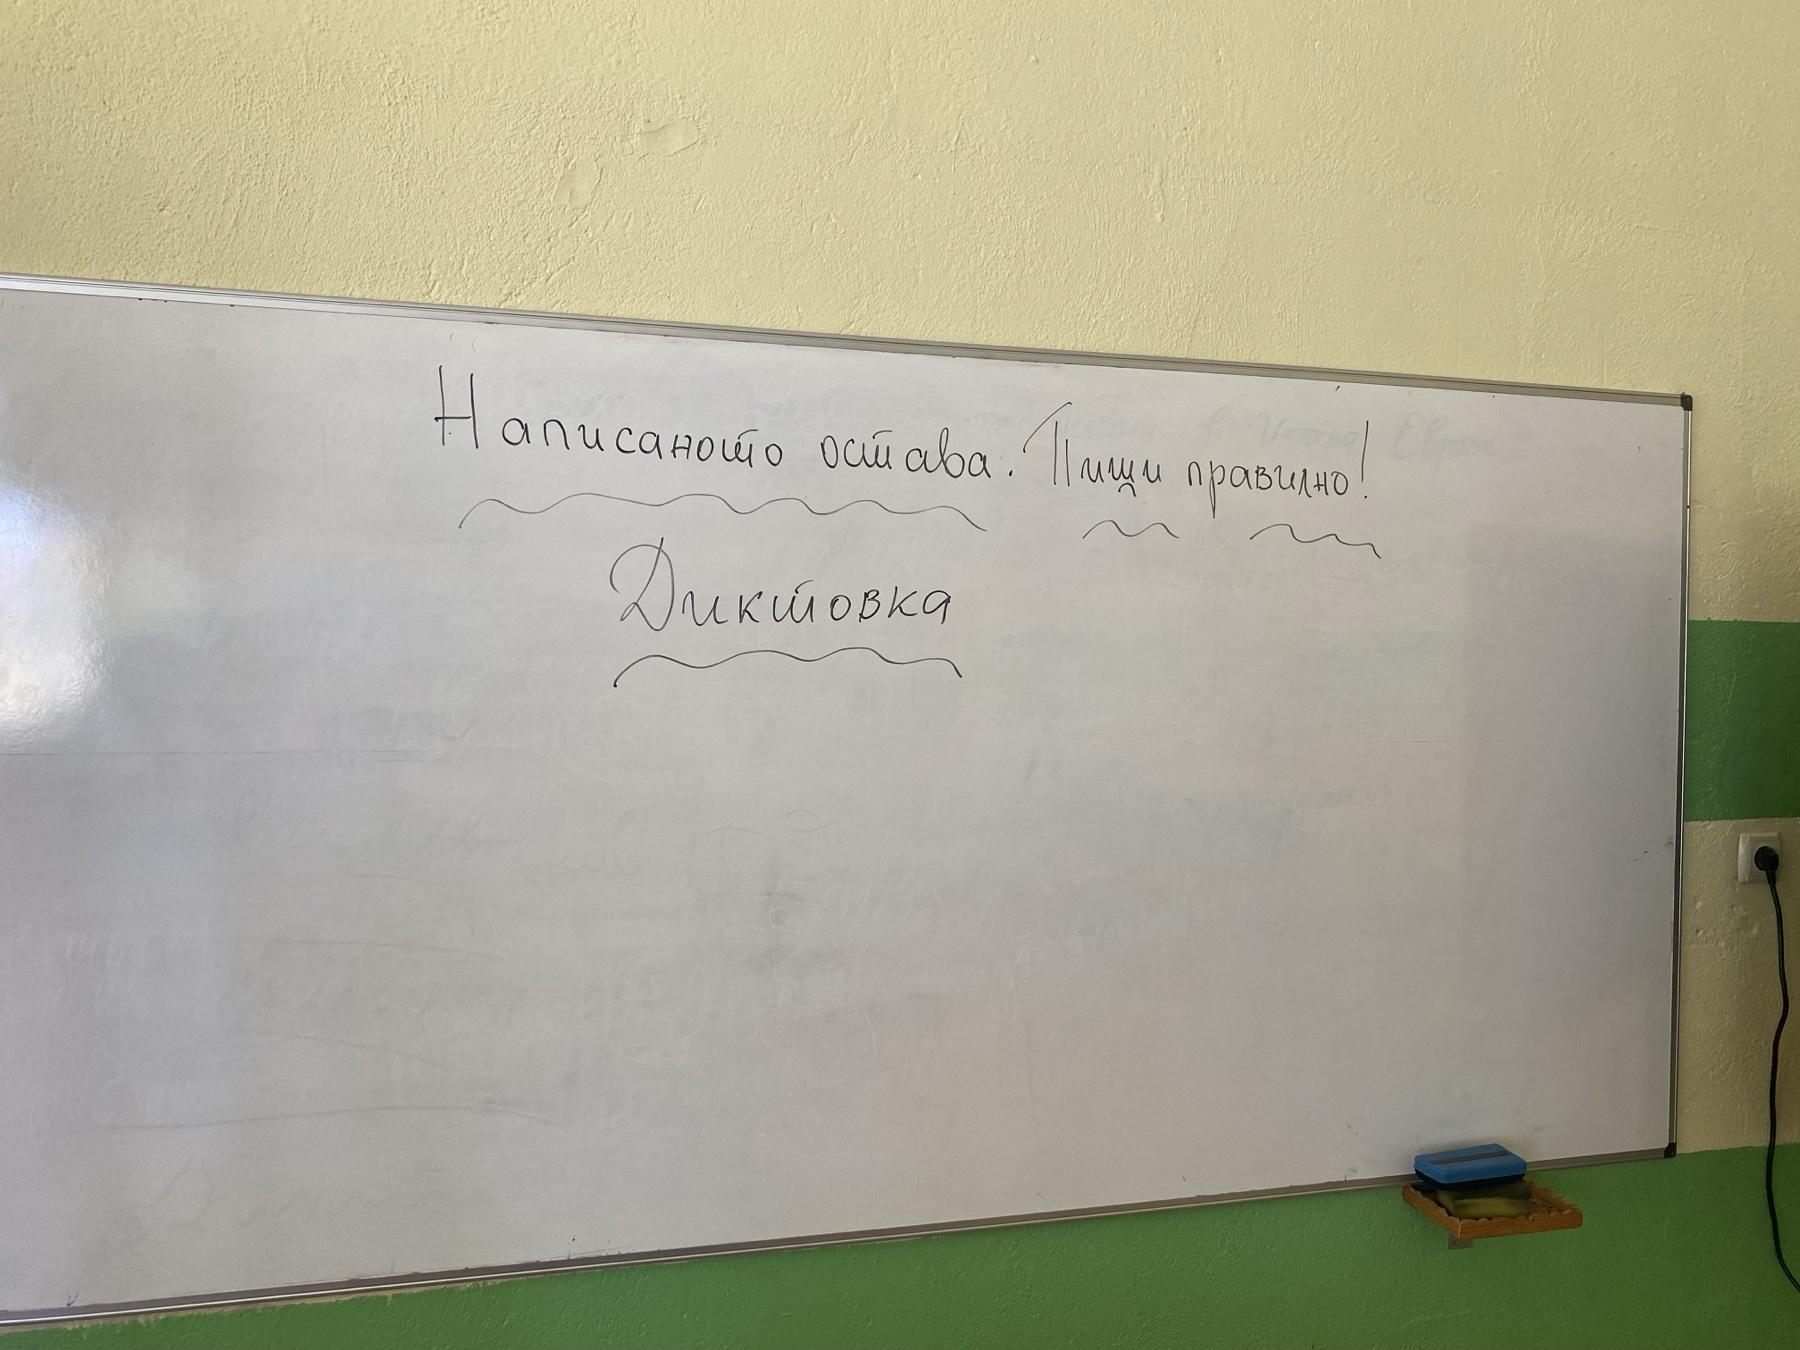 Написаното остава. Пиши правилно!
Диктовка